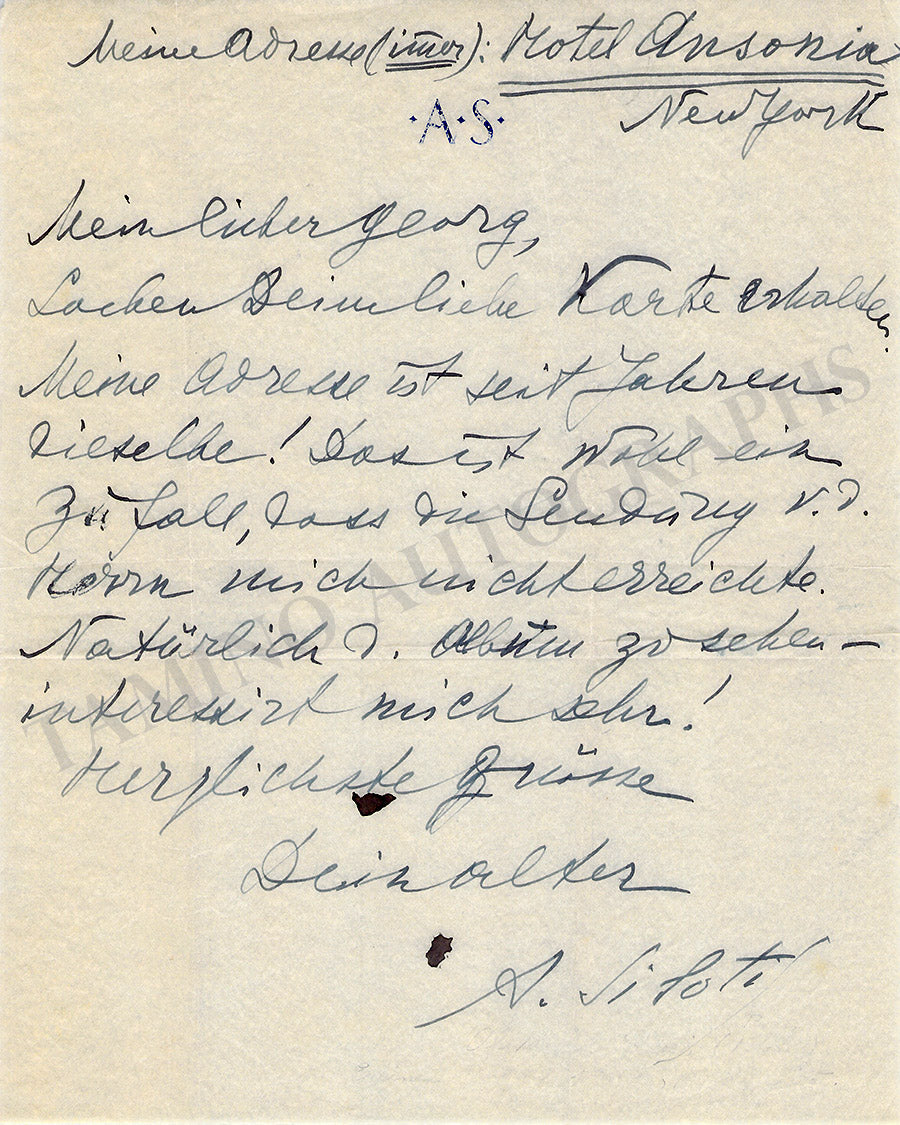 Meine Adresse (im̅er): Hotel Ansonia
New York
·A·S·
Mein lieber Georg,
Soeben Deine liebe Karte erhalten.
Meine Adresse ist seit Jahren
dieselbe! Das ist wohl ein
Zufall, dass die Sendung v. d.
Horn mich nicht erreichte.
Natürlich d. Album zu sehen –
interessirt mich sehr!
Herzlichste Grüsse
Dein alter
A. Siloti
TAMINO AUTOGRAPHS